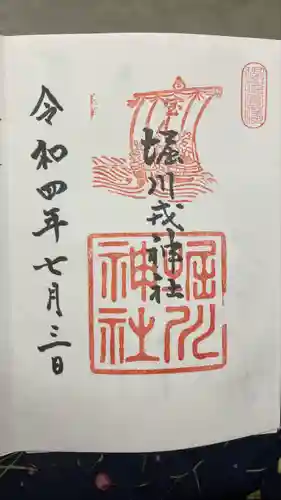 宝
堀川戎神社
堀川
神社
令和四年七月三日